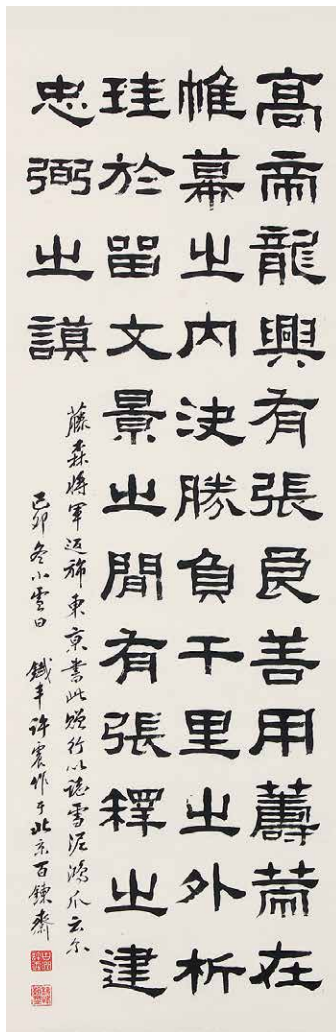 高帝龍興有張良善用籌䇲在
帷幕之内決勝負千里之外析
珪於留文景之間有張釋之建
忠弼之謨
藤森将軍返旆東京書此贈行以誌雪泥鴻爪云尔
己卯冬小雪日 鐵丰許震作于北京百鍊齋